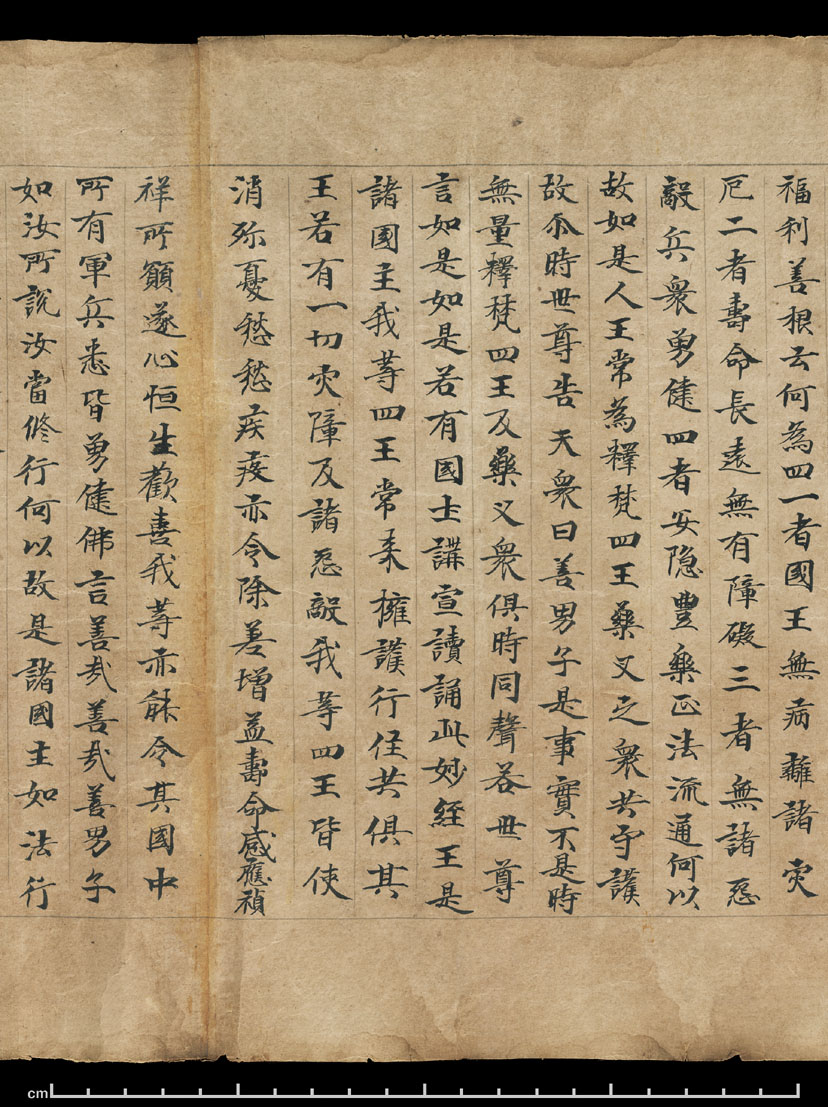 福利善根云何為四一者國王無病離諸灾
厄二者壽命長遠無有障礙三者無諸怨
敵兵衆勇健四者安隐豐樂正法流通何以
故如是人王常為釋梵四王藥叉之衆共守護
故尒時世尊告天衆曰善男子是事實不是時
無量釋梵四王及藥叉衆俱時同聲荅世尊
言如是如是若有國土講宣讀誦此妙經王是
諸國主我等四王常来擁護行住共俱其
王若有一切灾障及諸怨敵我等四王皆使
消弥憂愁愁疾疫亦令除差增益壽命感應禎
祥所願遂心恒生歡喜我等亦能令其國中
所有軍兵悉皆勇健佛言善哉善哉善男子
如汝所說汝當修行何以故是諸國主如法行
cm